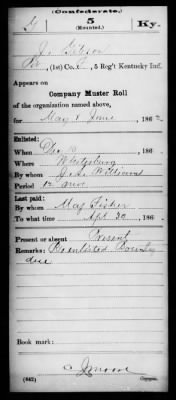 (Confederate.)
G 5 Ky.
(Mounted.)
Gibson
(1st) Co. , 5 Reg't Kentucky Inf.
Appears on
Company Muster Roll
of the organization named above,
for May & June , 186 2
Enlisted:
When 10
Where Whitesburg
By whom Williams
Period 12 mos
Last paid:
By whom Maj Fisher
To what time Apl 30 , 186
Present or absent Present
Remarks: Reenlisted Bounty
due
Book mark:
(642) Copyist.